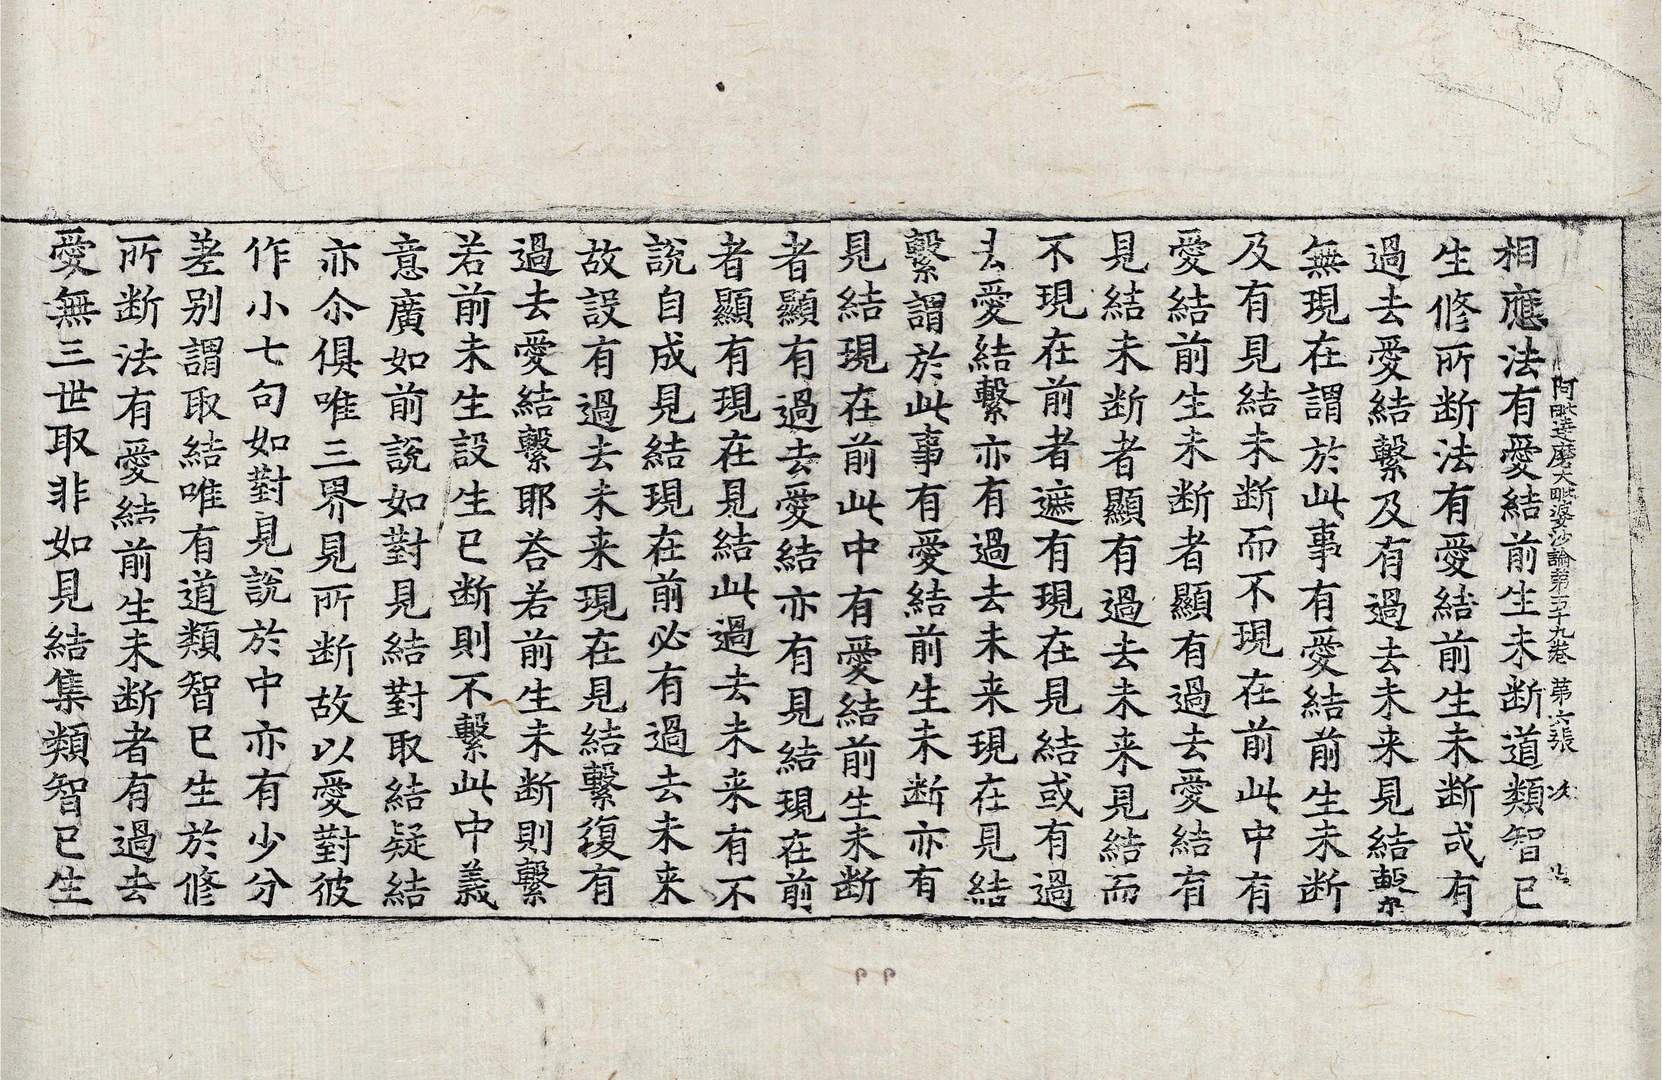 阿毗達磨大毗婆沙論第五十九卷 第六張 次
相應法有愛結前生未断道類智已
生修所断法有愛結前生未断或有
過去愛結繫及有過去未来見結繫
無現在謂於此事有愛結前生未断
及有見結未断而不現在前此中有
愛結前生未断者顯有過去愛結有
見結未断者顯有過去未来見結而
不現在前者遮有現在見結或有過
去愛結繫亦有過去未来現在見結
繫謂於此事有愛結前生未断亦有
見結現在前此中有愛結前生未断
者顯有過去愛結亦有見結現在前
者顯有現在見結此過去未来有不
說自成見結現在前必有過去未来
故設有過去未来現在見結繫復有
過去愛結繫耶荅若前生未断則繫
若前未生設生已断則不繫此中義
意廣如前說如對見結對取結疑結
亦尒俱唯三界見所断故以愛對彼
作小七句如對見說於中亦有少分
差别謂取結唯有道類智已生於修
所断法有愛結前生未断者有過去
愛無三世取非如見結集類智已生